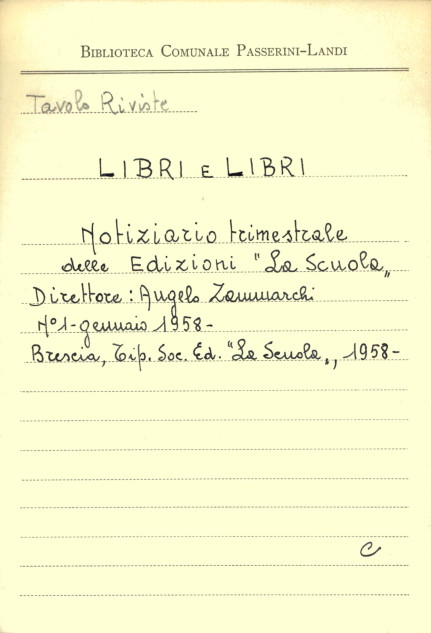 BIBLIOTECA COMUNALE PASSERINI-LANDI
Tavolo Riviste
LIBRI E LIBRI
Notiziario trimestrale
delle Edizioni "La Scuola„
Direttore: Angelo Zammarchi
N°1-gennaio 1958-
Brescia, Tip. Soc. Ed. "La Scuola„, 1958-
C